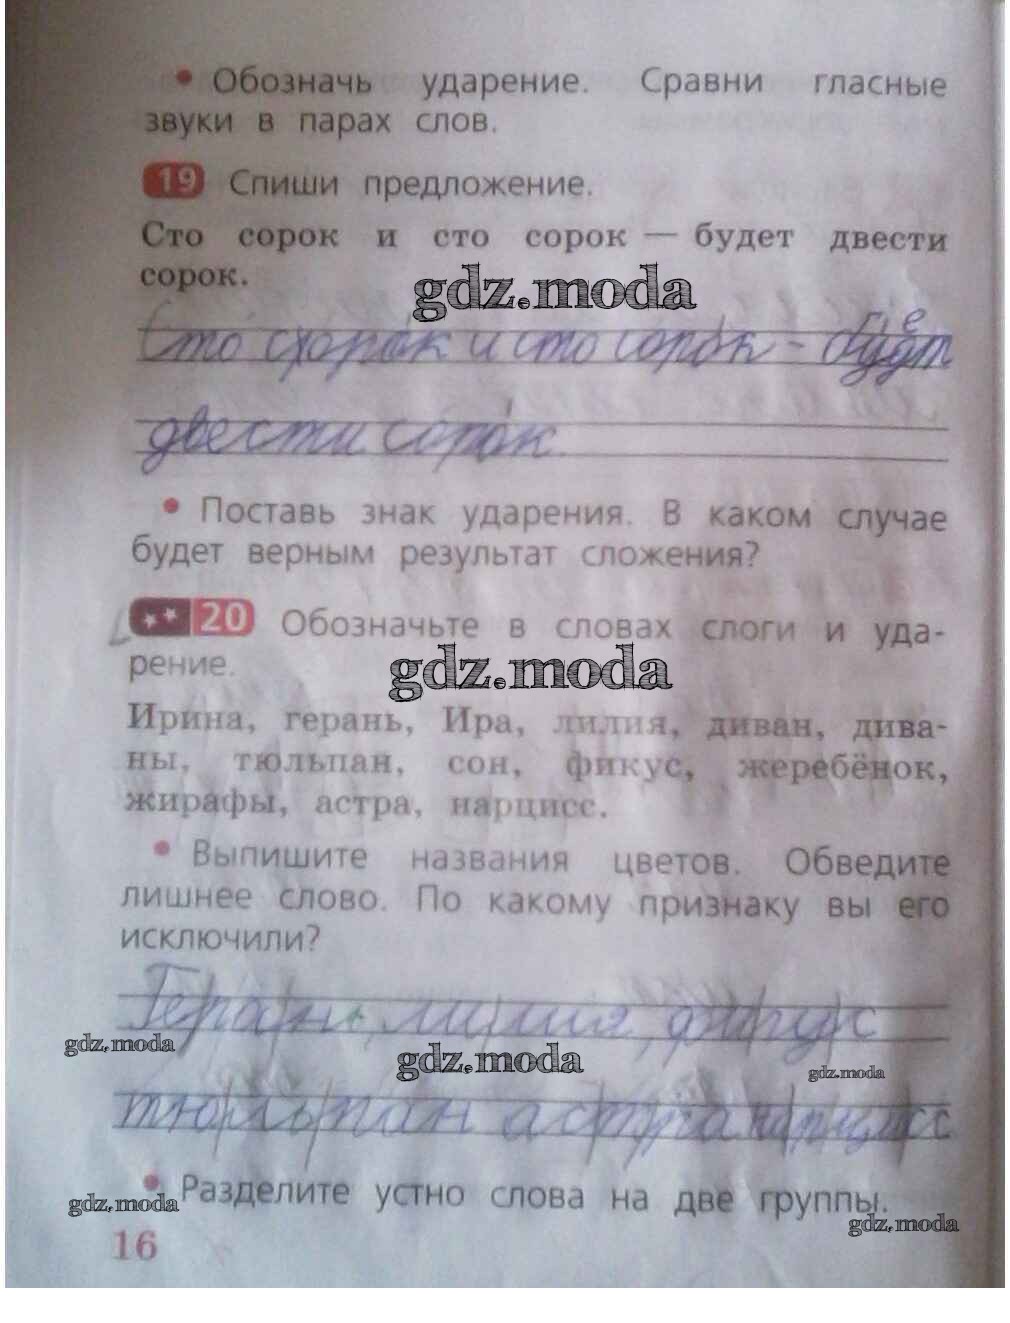 • Обозначь ударение. Сравни гласные
звуки в парах слов.
19 Спиши предложение.
Сто сорок и сто сорок — будет двести
сорок.
gdz.moda
Сто схорок и сто сорок - будет
двести сорок.
• Поставь знак ударения. В каком случае
будет верным результат сложения?
** 20 Обозначьте в словах слоги и уда-
рение.
gdz.moda
Ирина, герань, Ира, лилия, диван, дива-
ны, тюльпан, сон, фикус, жеребёнок,
жирафы, астра, нарцисс.
• Выпишите названия цветов. Обведите
лишнее слово. По какому признаку вы его
исключили?
Герань, лилия, фикус
gdz.moda
gdz.moda
gdz.moda
тюльпан астра нарцисс
• Разделите устно слова на две группы.
gdz.moda
gdz.moda
16